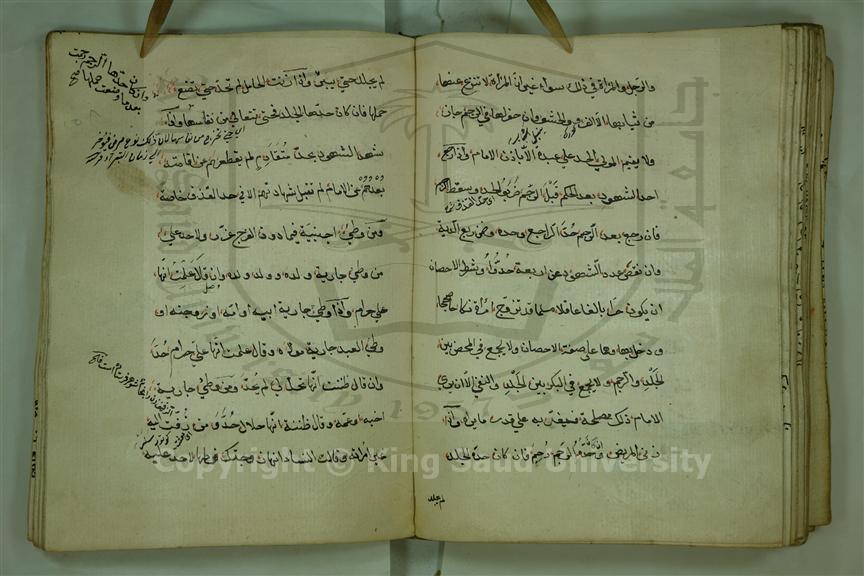 والرجل والمراة في ذلك سواء غير ان المراة لا تنزع عنها
من ثيابها الا الفرو والحشو وان حفر لها في الرجم جاز
ولا يقيم المولي الحد علي عبده الا باذن الامام واذا رجع
احد الشهود بعد الحكم قبل الرجم ضربوا الحد وسقط الرجم
فان رجع بعد الرجم حد الراجع وحده وضمن ربع الدية
وان نقص عدد الشهود عن اربعة حدوا وشرط الاحصان
ان يكون حرا بالغا عاقلا مسلما قد تزوج امراة نكاحا صحيحا
ودخل بها وهما علي صفة الاحصان ولا يجمع في المحصن بين
الجلد والرجم ولا يجمع في البكر بين الجلد والنفي الا ان يري
الامام ذلك مصلحة فيغربه علي قدر ما يري واذا
زني المريض وحده الرجم رجم فان كان حده الجلد
لم يجلد
لم يجلد حتي يبرئ واذا زنت الحامل لم تحد حتي تضع
حملها فان كان حدها الجلد فحتي تتعالي من نفاسها واذا
شهد الشهود بحد متقادم لم يقطعهم عن اقامته
بعدهم عن الامام لم تقبل شهادتهم الا في حد القذف خاصة
ومن وطئ اجنبية فيما دون الفرج عزر ولا حد علي
من وطئ جارية ولده وولد ولده وان قال علمت انها
علي حرام واذا وطئ جارية ابيه او امه او زوجته او
وطئ العبد جارية مولاه وقال علمت انها علي حرام حد
وان قال ظننت انها تحل لي لم يحد ومن وطئ جارية
اخيه وعمه وقال ظننت انها حلال حد ومن زفت اليه
غير امراته وقالت النساء انها زوجتك فوطئها لا حد عليه
Copyright © King Saud University